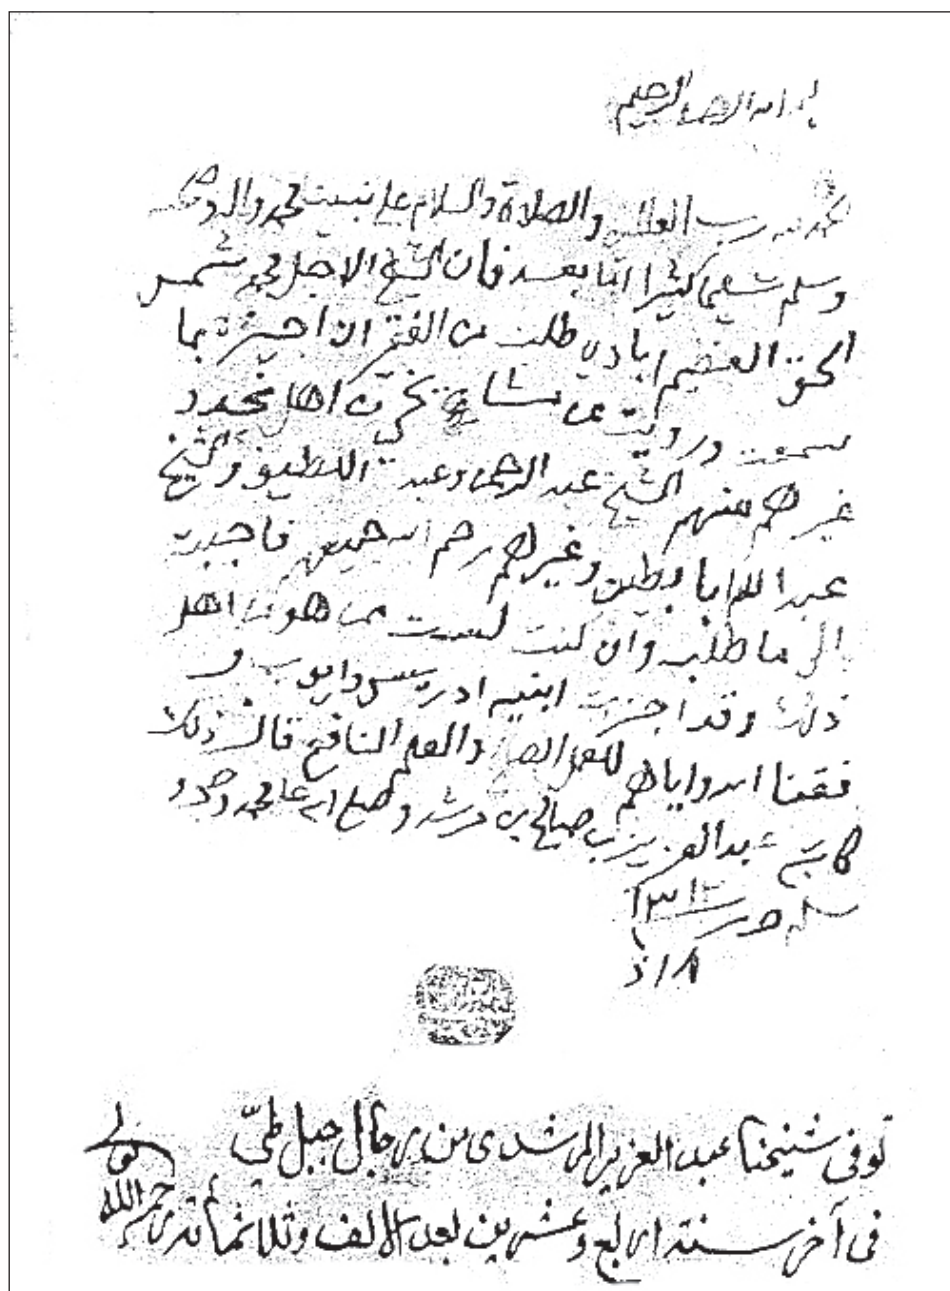 بسم الله الرحمن الرحيم
الحمد لله رب العالمين والصلاة والسلام على نبينا محمد واله وصحبه
وسلم تسليما كثيرا اما بعد فان الشيخ الاجل محمد شمس
الحق العظيم ابادي طلب من الفقير ان اجيزه بما
سمعت ورويت عن مشايخي من اهل نجد و
غيرهم منهم الشيخ عبد الرحمن وعبد اللطيف والشيخ
عبد الله ابا بطين وغيرهم رحم الله جميعهم فاجبت
الى ما طلب وان كنت لست ممن هو من اهل
ذلك وقد اجزت ابنيه ادريس وايوب و
فقنا الله واياهم للعمل الصالح والعلم النافع قال ذلك
كاتبه عبد العزيز بن صالح بن مرشد وصلى الله على محمد وصحبه و
سلم حرر ١٣١٢
١٨ ذ
توفى شيخنا عبد العزيز المرشدى من رجال جبل طيّ
فى آخر سنة اربع وعشرين بعد الالف وثلاثمائة رحمه الله